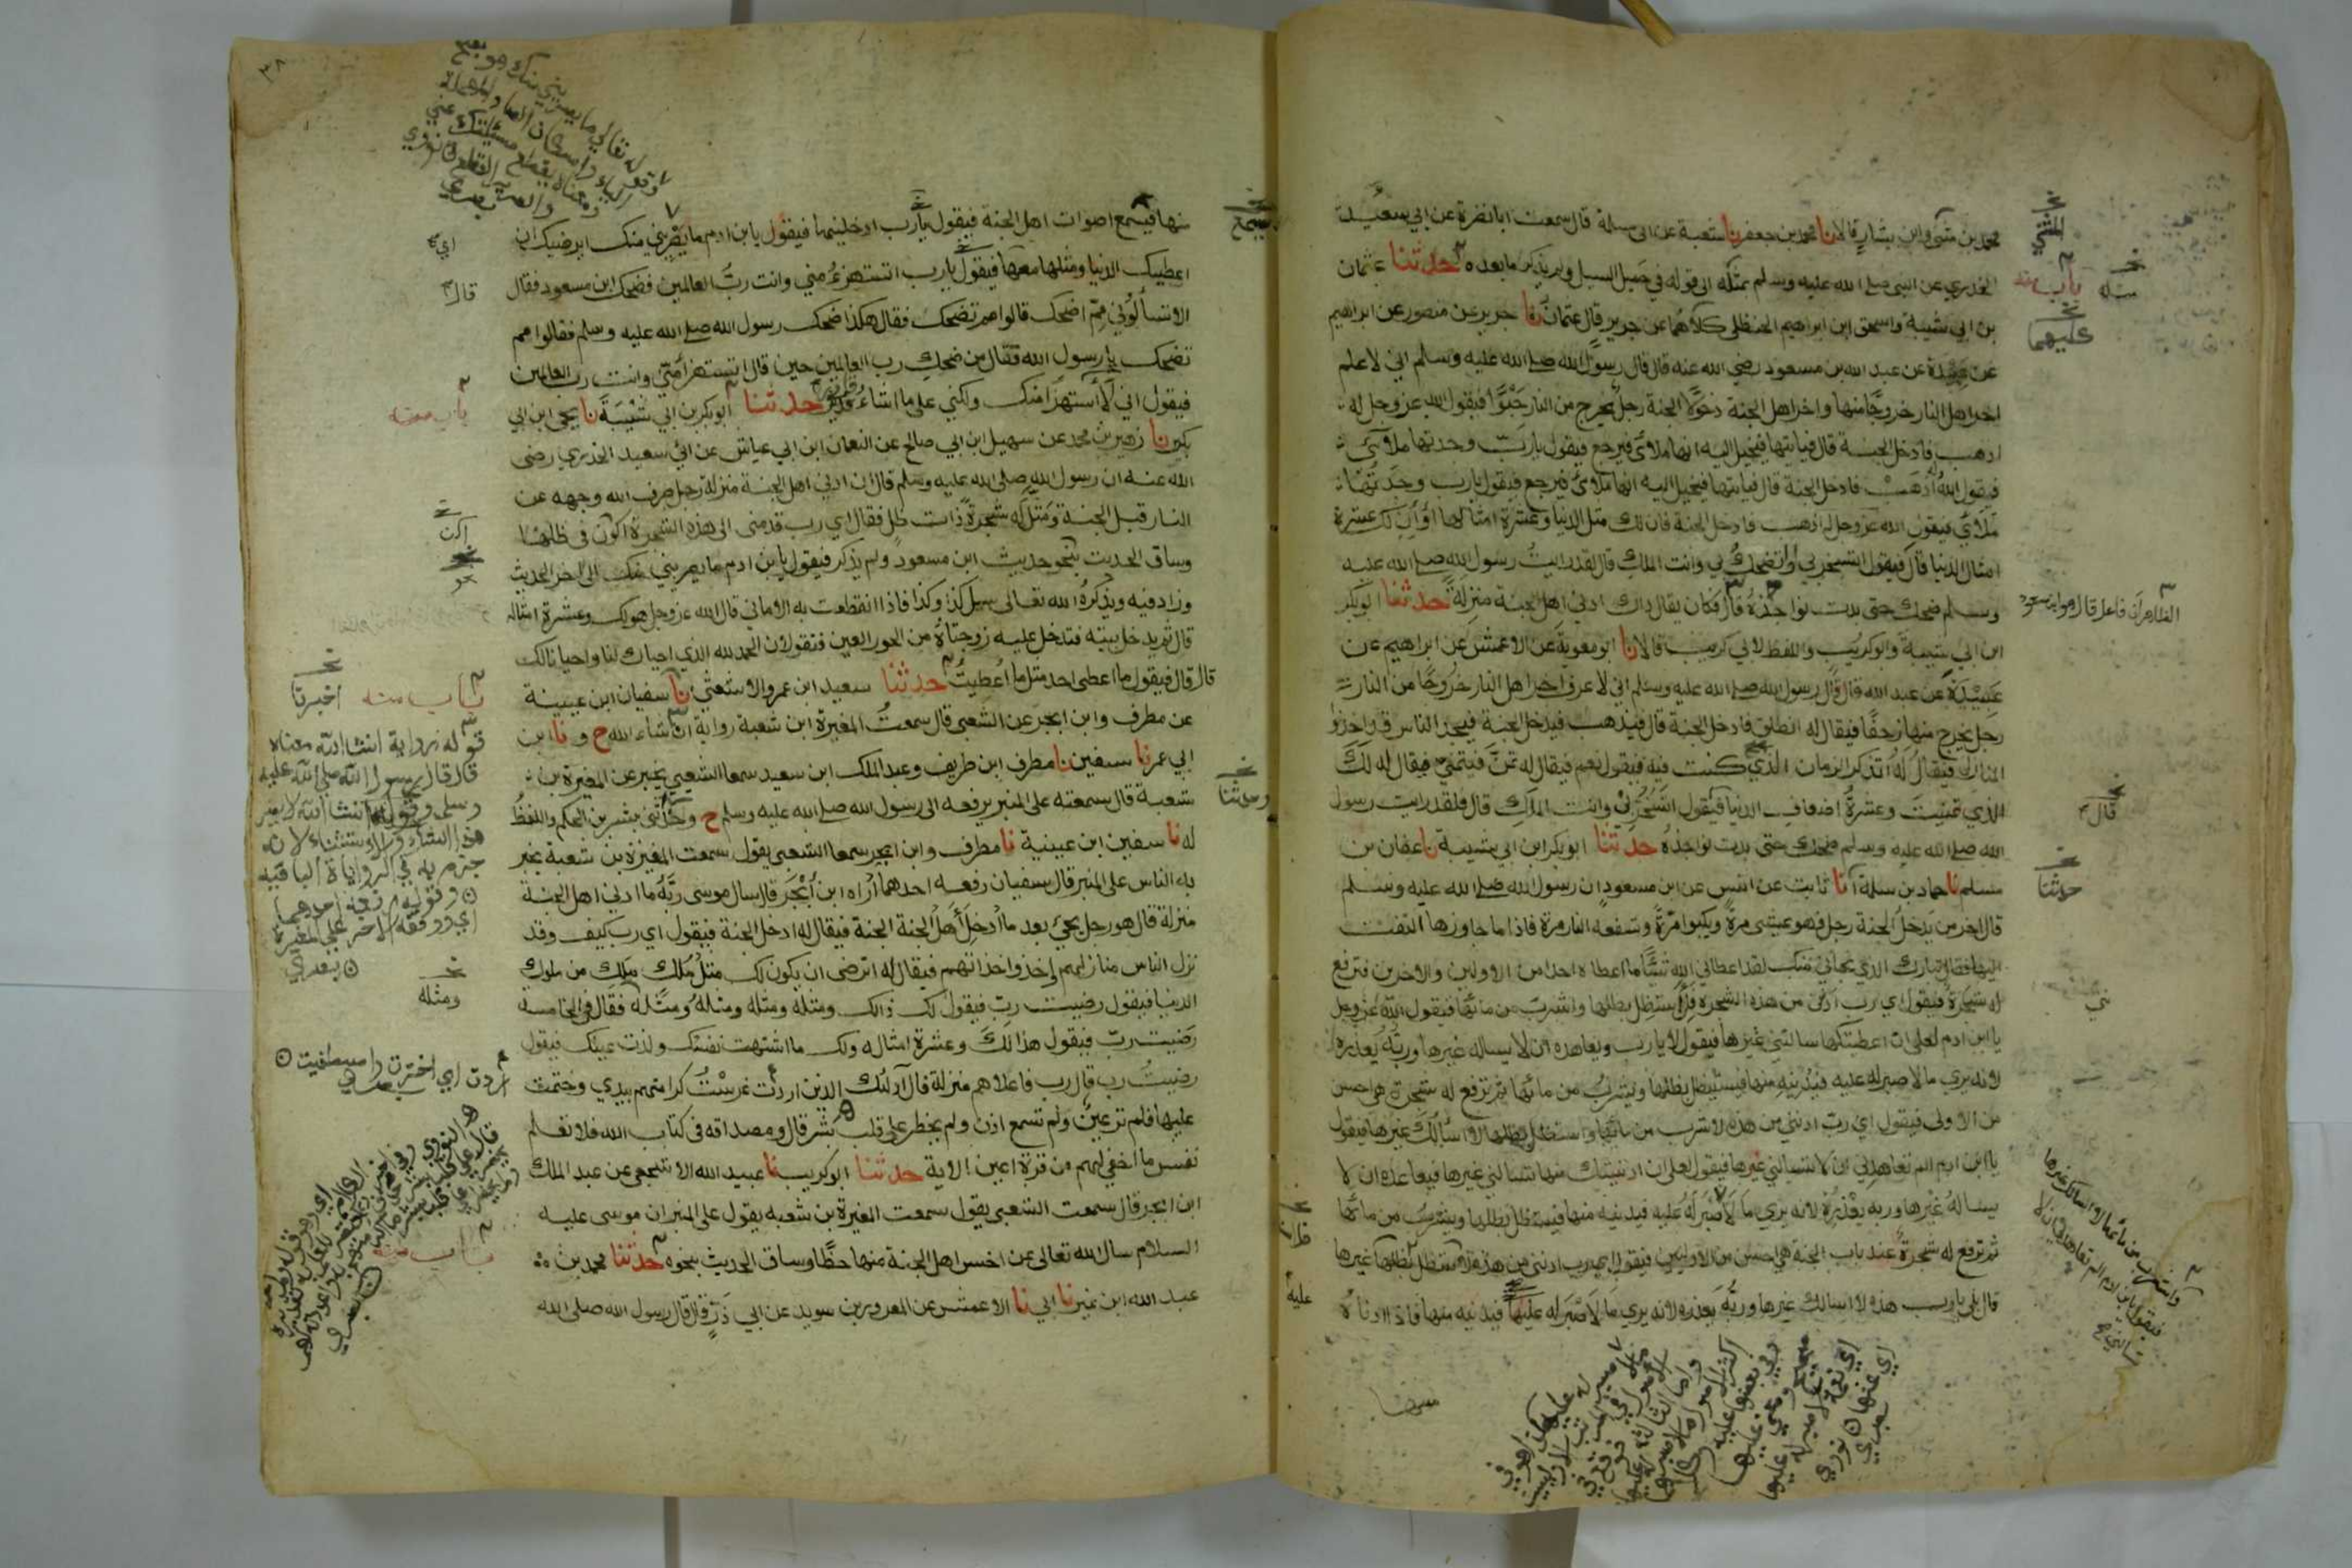 محمد بن مثنى وابن بشار قالا نا محمد بن جعفر نا شعبة عن ابى مسلمة قال سمعت ابا نضرة عن ابي سعيد
الخدري عن النبى صلے الله عليه وسلم بمثله الى قوله في حميل السيل ولم يذكر ما بعده حدثنا عثمان
بن ابي شيبة واسحق ابن ابراهيم الحنظلى كلاهما عن جرير قال عثمان نا جرير عن منصور عن ابراهيم
عن عبيدة عن عبد الله بن مسعود رضي الله عنه قال قال رسول الله صلے الله عليه وسلم اني لاعلم
اخر اهل النار خروجا منها واخر اهل الجنة دخولا الجنة رجل يخرج من النار حبوا فيقول الله عز وجل له
اذهب فادخل الجنة قال فياتيها فيخيل اليه انها ملأى فيرجع فيقول يا رب وجدتها ملأى
فيقول الله له اذهب فادخل الجنة قال فياتيها فيخيل اليه انها ملأى فيرجع فيقول يا رب وجدتها
ملأى فيقول الله عز وجل له اذهب فادخل الجنة فان لك مثل الدنيا وعشرة امثالها او ان لك عشرة
امثال الدنيا قال فيقول اتسخر بي او اتضحك بي وانت الملك قال لقد رايت رسول الله صلے الله عليه
وسلم ضحك حتى بدت نواجذه قال فكان يقال ذاك ادنى اهل الجنة منزلة حدثنا ابو بكر
ابن ابي شيبة وابو كريب واللفظ لابي كريب قالا نا ابو معوية عن الاعمش عن ابراهيم عن
عبيدة عن عبد الله قال قال رسول الله صلے الله عليه وسلم اني لاعرف اخر اهل النار خروجا من النار
رجل يخرج منها زحفا فيقال له انطلق فادخل الجنة قال فيذهب فيدخل الجنة فيجد الناس قد اخذوا
المنازل فيقال له اتذكر الزمان الذي كنت فيه فيقول نعم فيقال له تمن فيتمنى فيقال له لك
الذي تمنيت وعشرة اضعاف الدنيا فيقول اتسخر بي وانت الملك قال فلقد رايت رسول
الله صلے الله عليه وسلم ضحك حتى بدت نواجذه حدثنا ابو بكر ابن ابي شيبة نا عفان بن
مسلم نا حماد بن سلمة انا ثابت عن انس عن ابن مسعود ان رسول الله صلے الله عليه وسلم
قال اخر من يدخل الجنة رجل فهو يمشي مرة ويكبوا مرة وتسفعه النار مرة فاذا ما جاوزها التفت
اليها فقال تبارك الذي نجاني منك لقد اعطاني الله شيئا ما اعطاه احدا من الاولين والاخرين فترفع
له شجرة فيقول اي رب ادنى من هذه الشجرة فلأستظل بظلها واشرب من مائها فيقول الله عز وجل
يا ابن ادم لعلى ان اعطيتكها سالتني غيرها فيقول لا يا رب ويعاهده ان لا يساله غيرها وربه يعذره
لانه يري ما لا صبر له عليه فيدنيه منها فيستظل بظلها ويشرب من مائها ثم ترفع له شجرة هى احسن
من الاولى فيقول اي رب ادنني من هذه لاشرب من مائها واستظل بظلها لا اسألك غيرها فيقول
يا ابن ادم الم تعاهدني ان لا تسالني غيرها فيقول لعلي ان ادنيتك منها تسالني غيرها فيعاهده ان لا
يساله غيرها وربه يعذره لانه يري ما لا صبر له عليه فيدنيه منها فيستظل بظلها ويشرب من مائها
ثم ترفع له شجرة عند باب الجنة هي احسن من الاوليين فيقول اي رب ادنني من هذه لاستظل بظلها غيرها
قال بلى يا رب هذه لا اسالك غيرها وربه يعذره لانه يري ما لا صبر له عليها فيدنيه منها فاذا ادناه
المثني
باب منه
عليهما
الظاهر ان فاعل قال هو ابن مسعود
قال
حدثنا
عليه
واشرب من مائها لا اسالك غيرها
فيقول يا بن ادم الم تعاهدني ان لا
تسالني
٣٨
منها فيسمع اصوات اهل الجنة فيقول يا رب ادخلنيها فيقول يا بن ادم ما يصريني منك ايرضيك ان
اعطيك الدنيا ومثلها معها فيقول يا رب اتستهزئ مني وانت رب العالمين فضحك ابن مسعود فقال
الا تسألوني مم اضحك قالوا مم تضحك فقال هكذا ضحك رسول الله صلے الله عليه وسلم فقالوا مم
تضحك يا رسول الله فقال من ضحك رب العالمين حين قال اتستهزأ منى وانت رب العالمين
فيقول اني لا أستهزأ منك ولكني على ما اشاء قدير حدثنا ابو بكر بن ابي شيبة نا يحيى ابن ابي
بكير نا زهير بن محمد عن سهيل ابن ابي صالح عن النعمان ابن ابي عياش عن ابي سعيد الخدري رضى
الله عنه ان رسول الله صلى الله عليه وسلم قال ان ادنى اهل الجنة منزلة رجل صرف الله وجهه عن
النار قبل الجنة ومثل له شجرة ذات ظل فقال اي رب قدمنى الى هذه الشجرة اكون فى ظلها
وساق الحديث بنحو حديث ابن مسعود ولم يذكر فيقول يا بن ادم ما يصريني منك الى اخر الحديث
وزاد فيه ويذكره الله تعالى سل كذا وكذا فاذا انقطعت به الاماني قال الله عز وجل هو لك وعشرة امثاله
قال ثم يدخل بيته فتدخل عليه زوجتاه من الحور العين فتقولان الحمد لله الذي احياك لنا واحيانا لك
قال قال فيقول ما اعطى احد مثل ما اعطيت حدثنا سعيد ابن عمرو الاشعثي نا سفيان ابن عيينة
عن مطرف وابن ابجر عن الشعبى قال سمعت المغيرة ابن شعبة رواية ان شاء الله ح ونا ابن
ابي عمر نا سفين نا مطرف ابن طريف وعبد الملك ابن سعيد سمعا الشعبي يخبر عن المغيرة بن
شعبة قال سمعته على المنبر يرفعه الى رسول الله صلے الله عليه وسلم ح وحدثنى بشر بن الحكم واللفظ
له نا سفين ابن عيينة نا مطرف وابن ابجر سمعا الشعبى يقول سمعت المغيرة بن شعبة يخبر
به الناس على المنبر قال سفيان رفعه احدهما اراه ابن ابجر قال سال موسى ربه ما ادنى اهل الجنة
منزلة قال هو رجل يجئ بعد ما ادخل اهل الجنة الجنة فيقال له ادخل الجنة فيقول اي رب كيف وقد
نزل الناس منازلهم واخذوا اخذاتهم فيقال له اترضى ان يكون لك مثل ملك ملك من ملوك
الدنيا فيقول رضيت رب فيقول لك ذالك ومثله ومثله ومثله ومثله فقال فى الخامسة
رضيت رب فيقول هذا لك وعشرة امثاله ولك ما اشتهت نفسك ولذت عينك فيقول
رضيت رب قال رب فاعلاهم منزلة قال اولئك الذين اردت غرست كرامتهم بيدي وختمت
عليها فلم تر عين ولم تسمع اذن ولم يخطر على قلب بشر قال ومصداقه فى كتاب الله فلا تعلم
نفس ما اخفي لهم من قرة اعين الاية حدثنا ابو كريب نا عبيد الله الاشجعى عن عبد الملك
ابن ابجر قال سمعت الشعبى يقول سمعت المغيرة بن شعبه يقول على المنبر ان موسى عليه
السلام سال الله تعالى عن اخس اهل الجنة منها حظا وساق الحديث بنحوه حدثنا محمد بن
عبد الله ابن نمير نا ابي نا الاعمش عن المعرور بن سويد عن ابي ذر قال قال رسول الله صلى الله
فيسمع
اي
قال
باب منه
باب منه
اخبرنا
قوله رواية انشا الله معناه
قال قال رسول الله صلى الله عليه
وسلم وقوله انشا الله لا يضر
هذا الشك والاستثناء لانه
جزم به في الروايات الباقيه
وقوله رفعه احدهما
اي ووقفه الاخر على المغيرة
وحدثنا
ومثله
اردت اي اخترت واصطفيت
باب منه